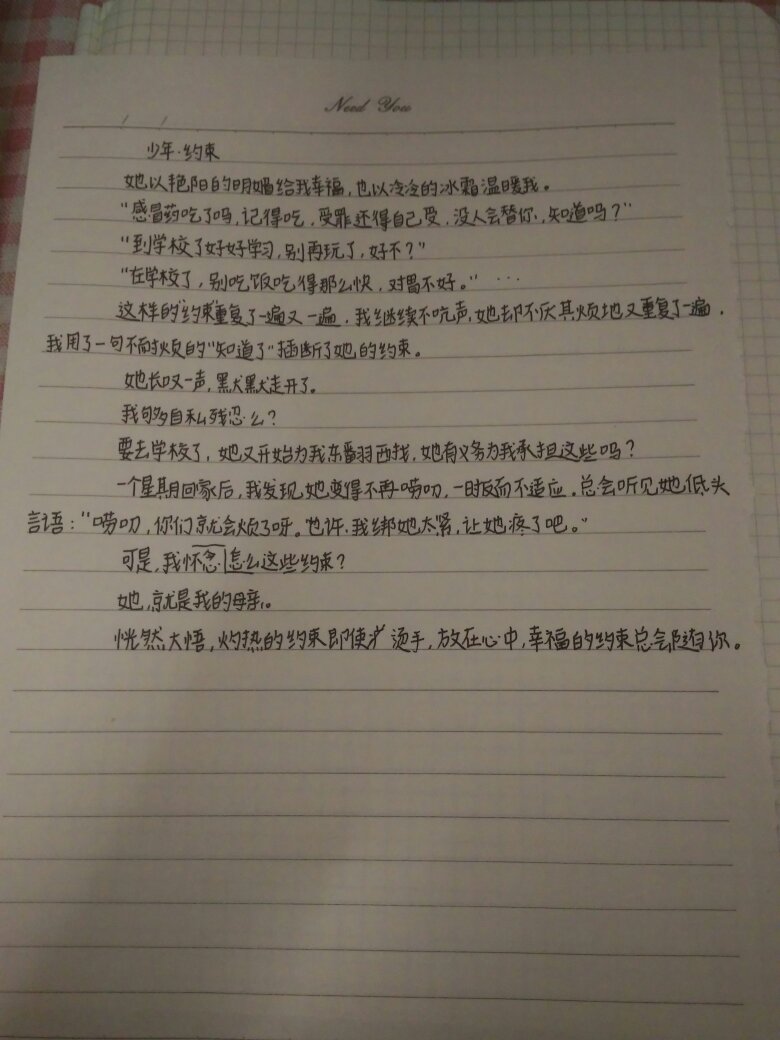 Need You
/ /
少年·约束
她以艳阳的明媚给我幸福，也以冷冷的冰霜温暖我。
“感冒药吃了吗，记得吃，受罪还得自己受，没人会替你，知道吗？”
“到学校了好好学习，别再玩了，好不？”
“在学校了，别吃饭吃得那么快，对胃不好。”…
这样的“约束”重复了一遍又一遍，我继续不吭声，她却不厌其烦地又重复了一遍，
我用了一句不耐烦的“知道了”插断了她的约束。
她长叹一声，默默走开了。
我够自私残忍么？
要去学校了，她又开始为我东翻西找，她有义务为我承担这些吗？
一个星期回家后，我发现她变得不再唠叨，一时反而不适应。总会听见她低头
言语：“唠叨，你们就会烦了呀。也许，我绑她太紧，让她疼了吧。”
可是，我怀念怎么这些约束？
她，就是我的母亲。
恍然大悟，灼热的约束即使烫手，放在心中，幸福的约束总会陪着你。